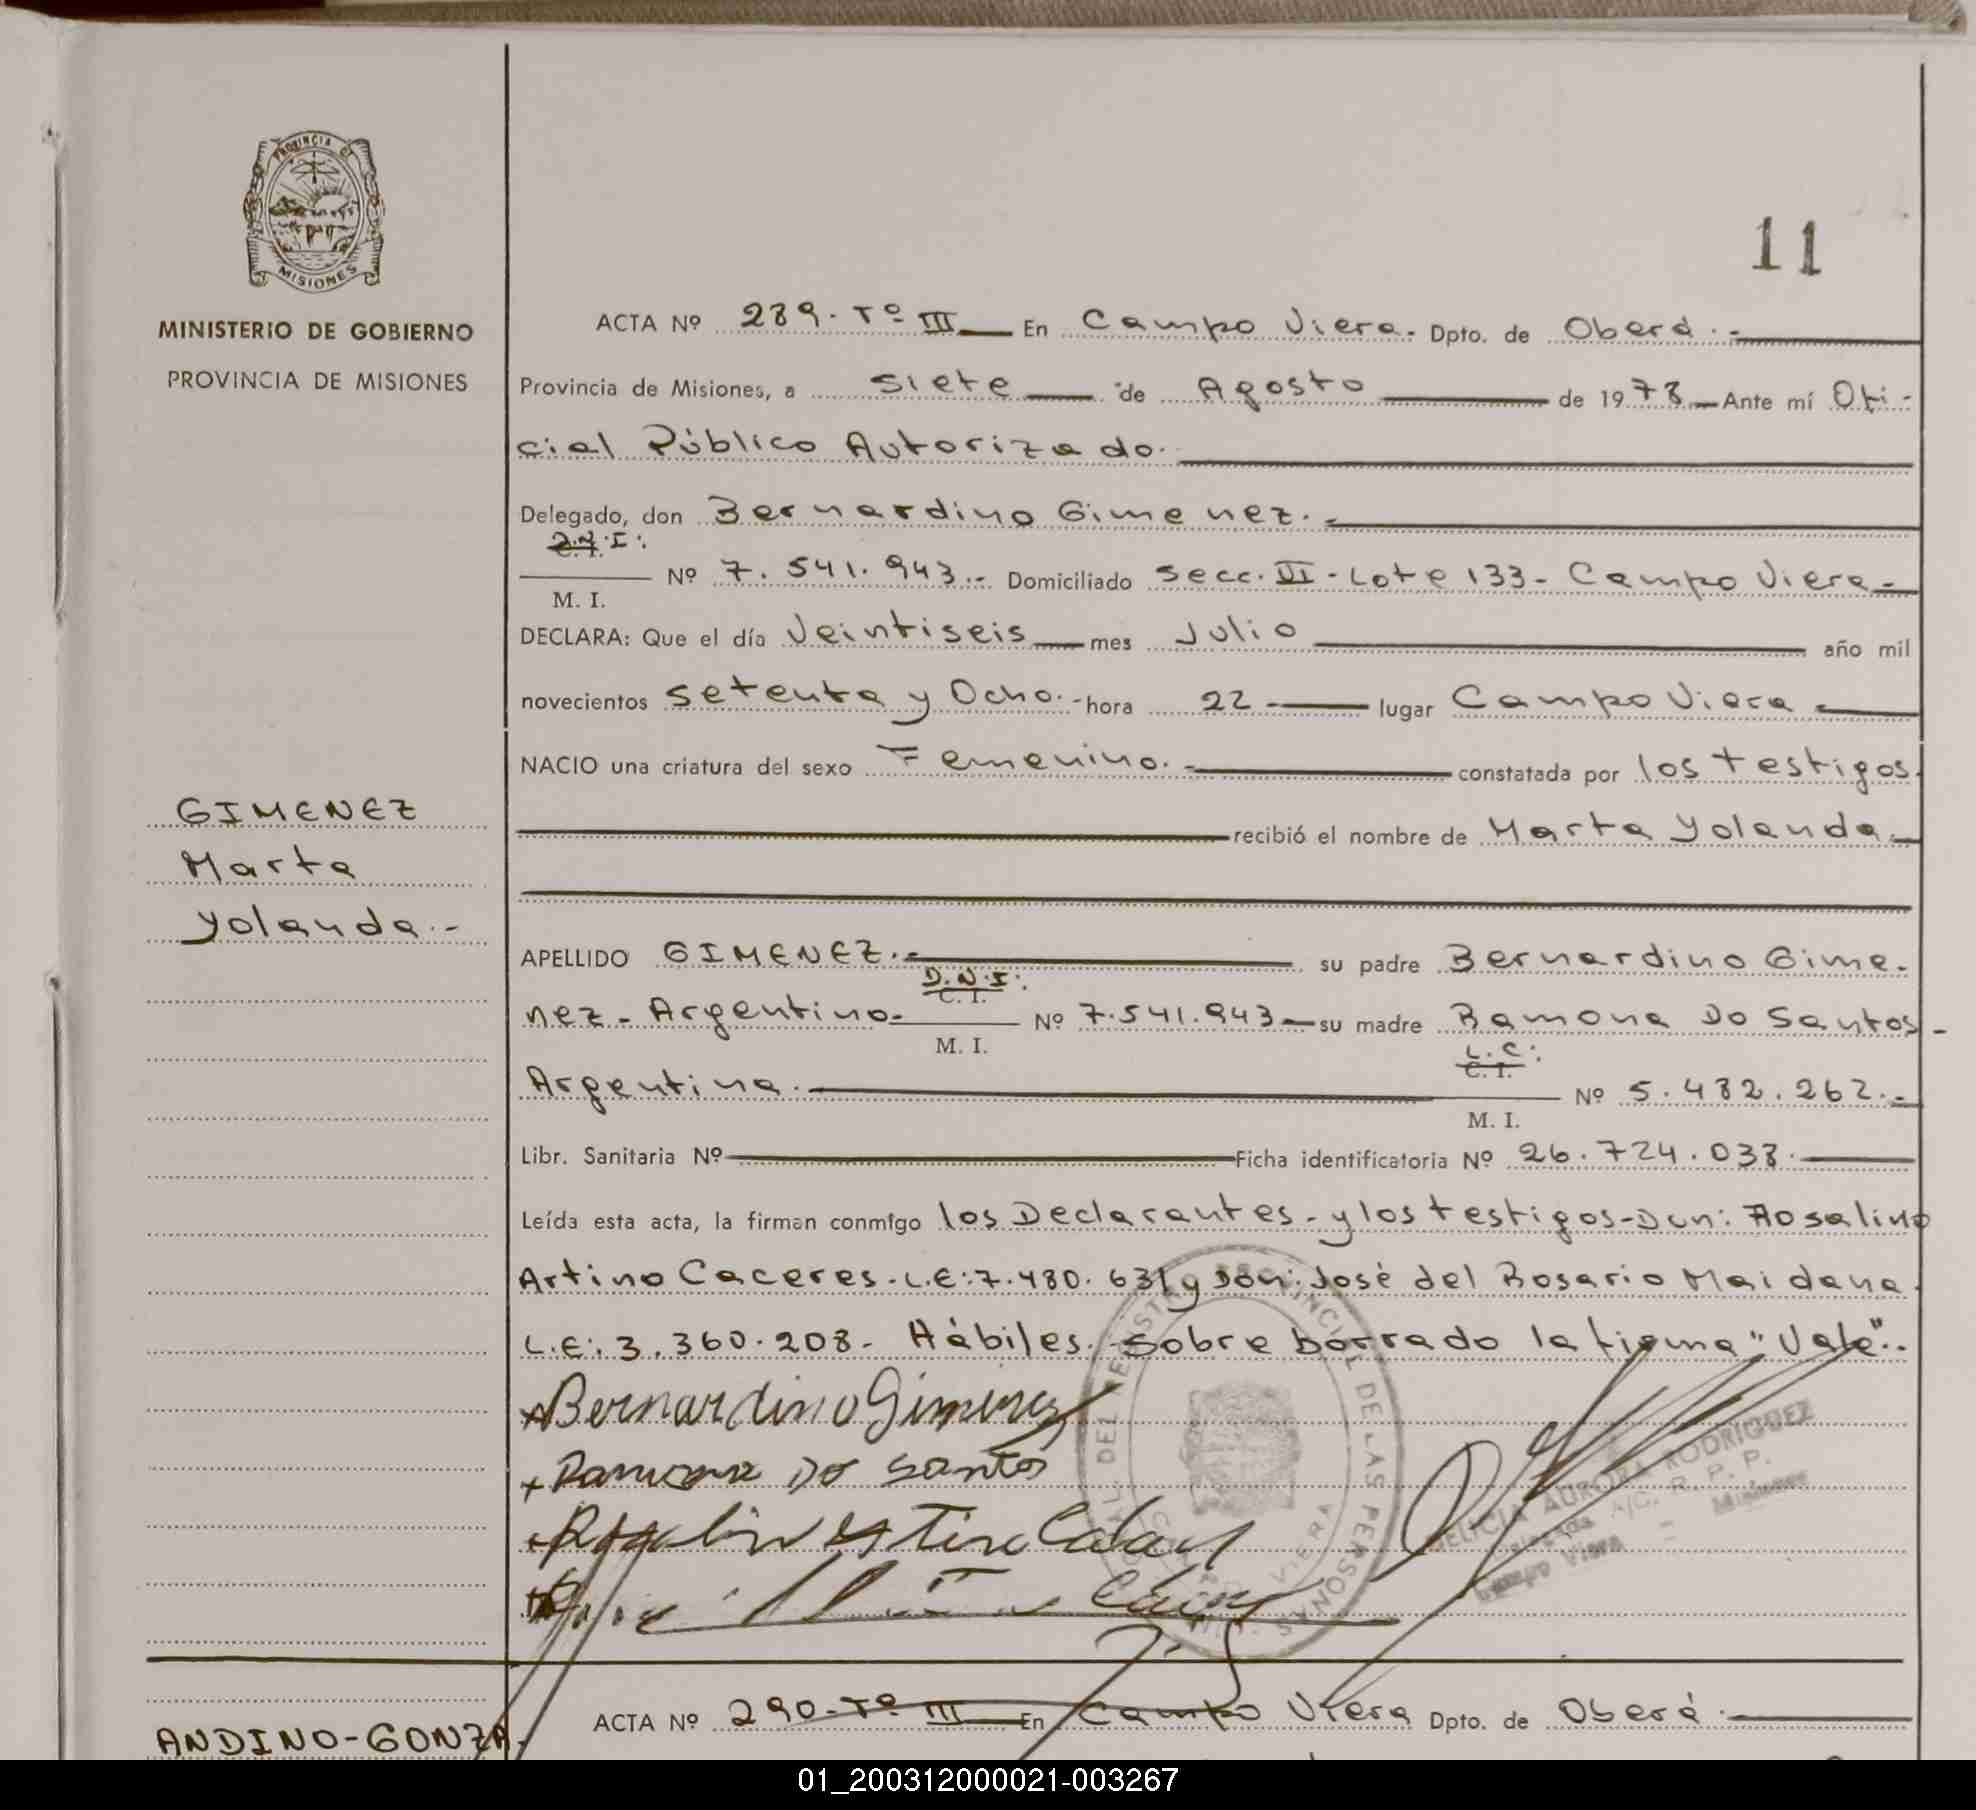 PROVINCIA DE
MISIONES
MINISTERIO DE GOBIERNO
PROVINCIA DE MISIONES
11
ACTA Nº 289. Tº III En Campo Viera. Dpto. de Oberá.-
Provincia de Misiones, a siete de Agosto de 1978 Ante mí Ofi-
cial Público Autorizado.
Delegado, don Bernardino Gimenez.-
D.N.I:
Nº 7.541.943.- Domiciliado Secc. VI - Lote 133 - Campo Viera -
M. I.
DECLARA: Que el día Veintiseis mes Julio año mil
novecientos setenta y Ocho.- hora 22 lugar Campo Viera
NACIO una criatura del sexo Femenino.- constatada por los testigos.
GIMENEZ
recibió el nombre de Marta Yolanda
Marta
Yolanda.-
APELLIDO GIMENEZ.- su padre Bernardino Gime-
D.N.I:
C. I.
nez - Argentino - Nº 7.541.943 su madre Ramona Do Santos -
M. I.
L.C:
C. I.
Argentina. Nº 5.482.262.-
M. I.
Libr. Sanitaria Nº Ficha identificatoria Nº 26.724.038.
Leída esta acta, la firman conmigo los Declarantes - y los testigos - Don: Rosalino
Artino Caceres. L.E: 7.480.631 y Don: José del Rosario Maidana.
L.E: 3.360.208 - Hábiles. - Sobre borrado la firma "Vale".
Bernardino Gimenez
Ramona Do Santos
DEL REGISTRO PROVINCIAL DE LAS PERSONAS
VIERA
DELICIA AURORA RODRIGUEZ
A/C. R. P. P.
Campo Viera - Misiones
ACTA Nº 290 - Tº III En Campo Viera Dpto. de Oberá.
ANDINO-GONZA-
01_200312000021-003267